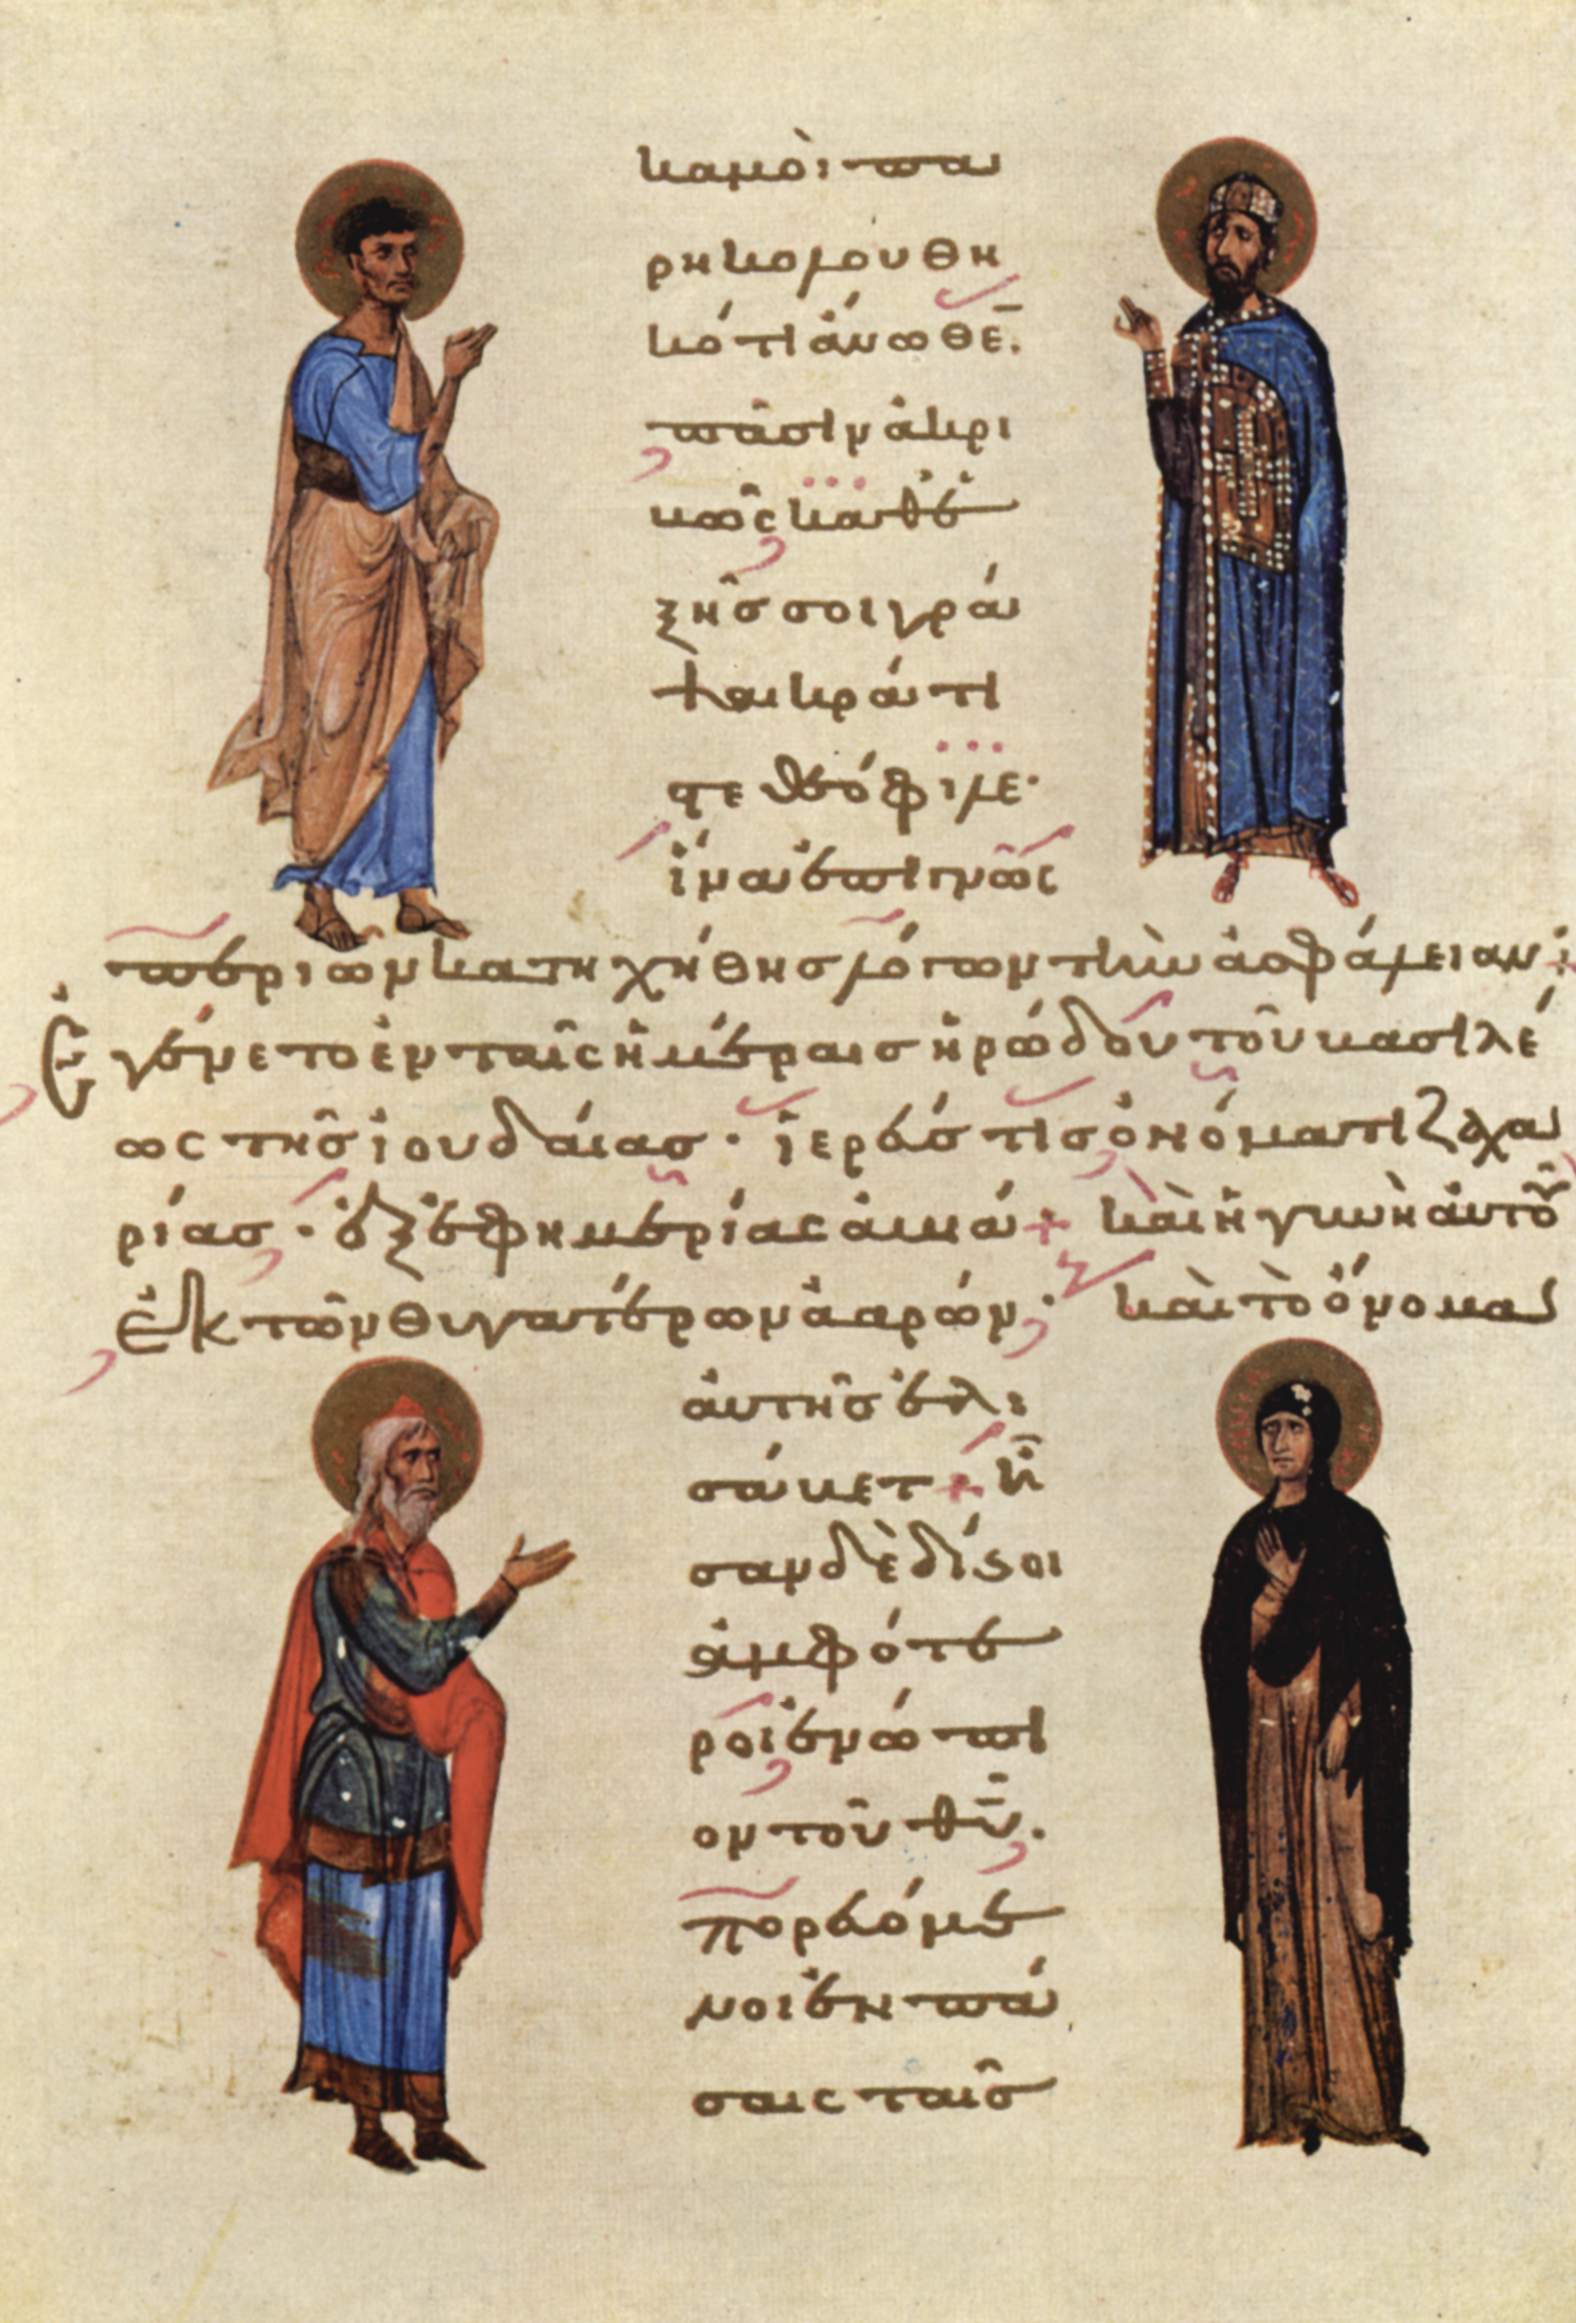 καμοὶ πα
ρηκολουθη
κότι ἄνωθε̄.
πᾶσιν ἀκρι
βῶς καθε
ξῆς σοι γρά
ψαι κράτι
στε θεόφιλε·
ἵνα ἐπιγνῶς
περι ὧν κατηχήθης λόγων τὴν ἀσφάλειαν:
Ἐγένετο ἐν ταῖς ἡμέραις ἡρώδου τοῦ βασιλέ
ως τῆς ἰουδαίας· ἱερεύς τις ὀνόματι ζαχα
ρίας· ἐξ ἐφημερίας ἀβιά + καὶ ἡ γυνὴ αὐτοῦ
ἐκ τῶν θυγατέρων ἀαρών· καὶ τὸ ὄνομα
αὐτῆς ἐλι
σάβετ + ἦ
σαν δὲ δίϗοι
ἀμφότε
ροι ἐνώπι
ον τοῦ θῡ.
πορευόμε
νοι ἐν πά
σαις ταῖς